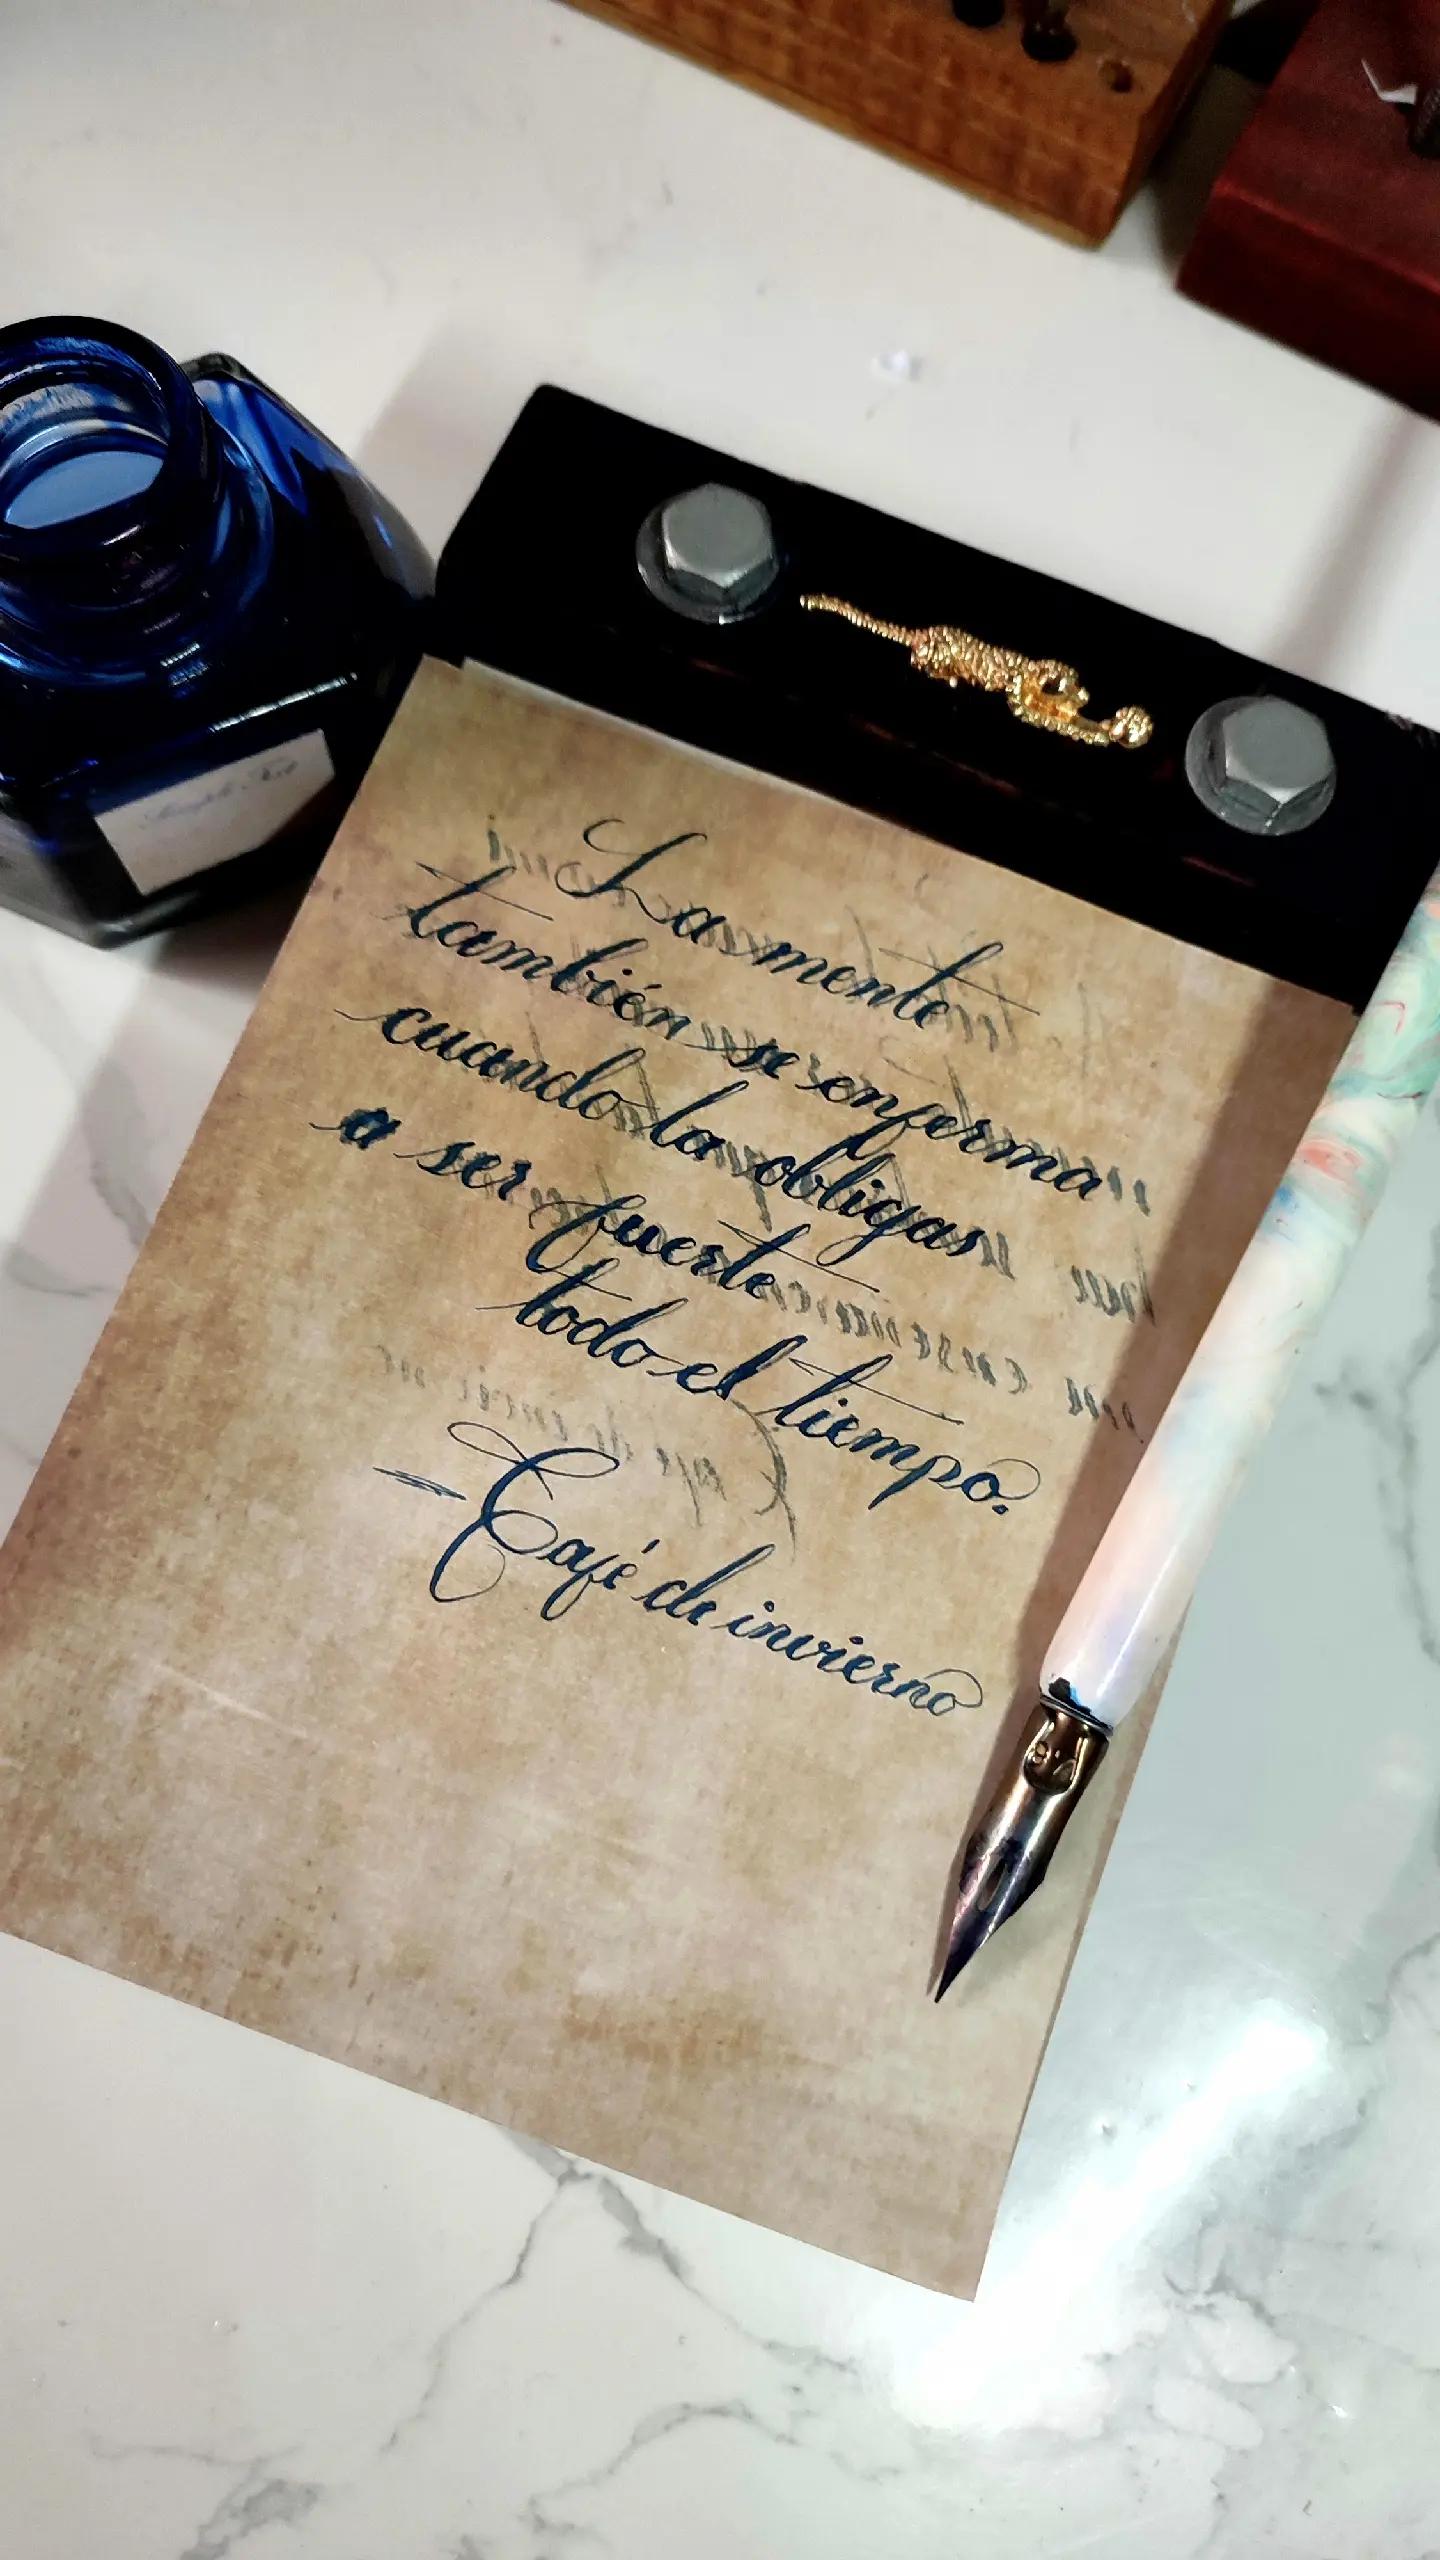 La mente
también se enferma
cuando la obligas
a ser fuerte
todo el tiempo.
Café de invierno